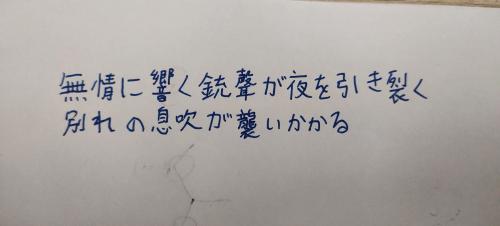 無情に響く銃聲が夜を引き裂く
別れの息吹が襲いかかる